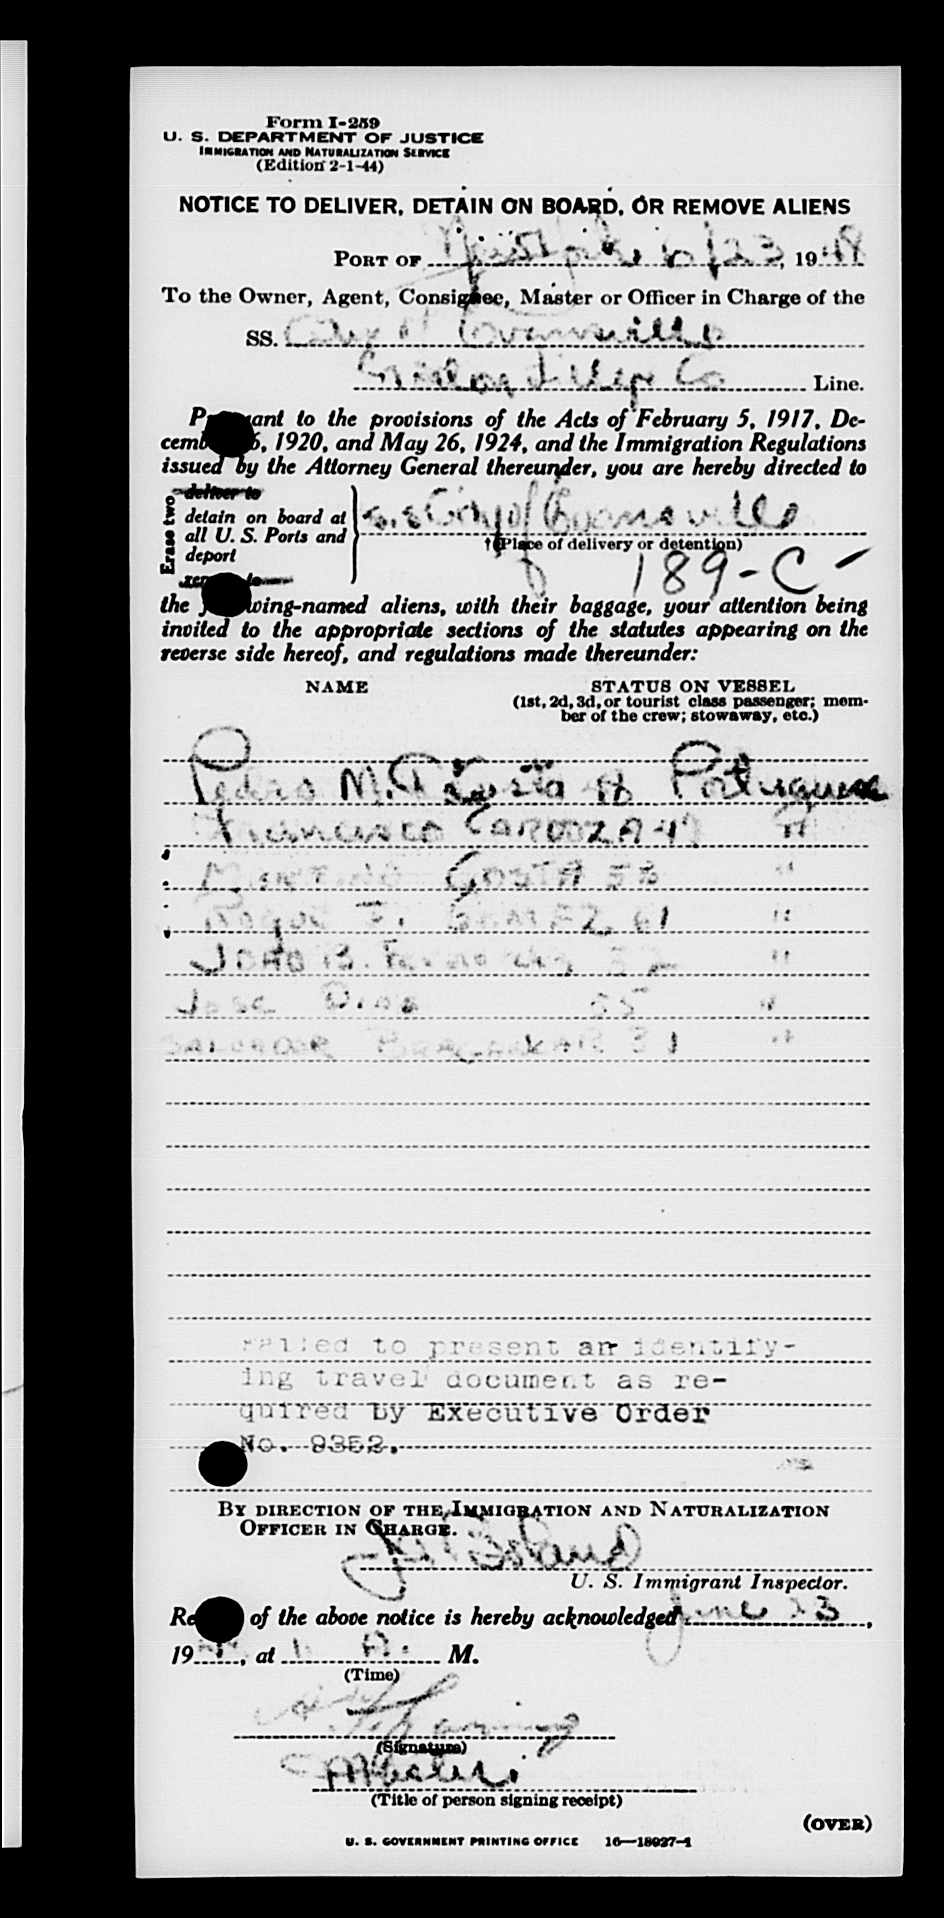 Form I-259
U. S. DEPARTMENT OF JUSTICE
IMMIGRATION AND NATURALIZATION SERVICE
(Edition 2-1-44)
NOTICE TO DELIVER, DETAIN ON BOARD, OR REMOVE ALIENS
PORT OF 6/23, 1948
To the Owner, Agent, Consignee, Master or Officer in Charge of the
SS. City of Evansville
Co Line.
Pursuant to the provisions of the Acts of February 5, 1917, De-
cember 26, 1920, and May 26, 1924, and the Immigration Regulations
issued by the Attorney General thereunder, you are hereby directed to
Erase two
deliver to
detain on board at
all U. S. Ports and
deport
remove to
S.S City of Evansville
†(Place of delivery or detention)
189-C-
the following-named aliens, with their baggage, your attention being
invited to the appropriate sections of the statutes appearing on the
reverse side hereof, and regulations made thereunder:
NAME STATUS ON VESSEL
(1st, 2d, 3d, or tourist class passenger; mem-
ber of the crew; stowaway, etc.)
Pedro M. Portuguese
Francisco CARDOZA 47 "
COSTA "
Roque F. GOMEZ 61 "
JOAO B. Fernandez 52 "
Jose Dias 55 "
SALVADOR 51 "
Failed to present an identify-
ing travel document as re-
quired by Executive Order
No. 9352.
BY DIRECTION OF THE IMMIGRATION AND NATURALIZATION
OFFICER IN CHARGE.
U. S. Immigrant Inspector.
Receipt of the above notice is hereby acknowledged June 23,
19, at A. M.
(Time)
(Signature)
Master
(Title of person signing receipt)
(OVER)
U. S. GOVERNMENT PRINTING OFFICE 16—18027-1